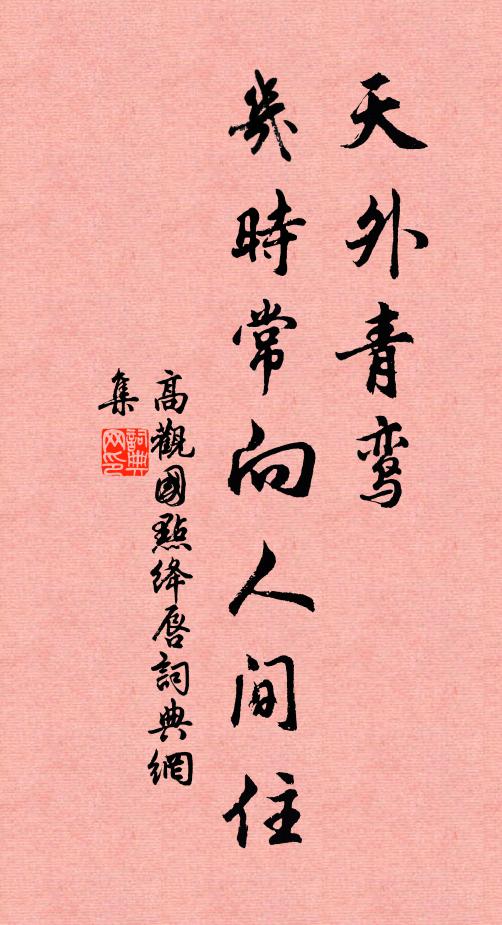 天外青鸾
幾時常向人间住
高觀國點绛唇詞典網
集
詞典网印